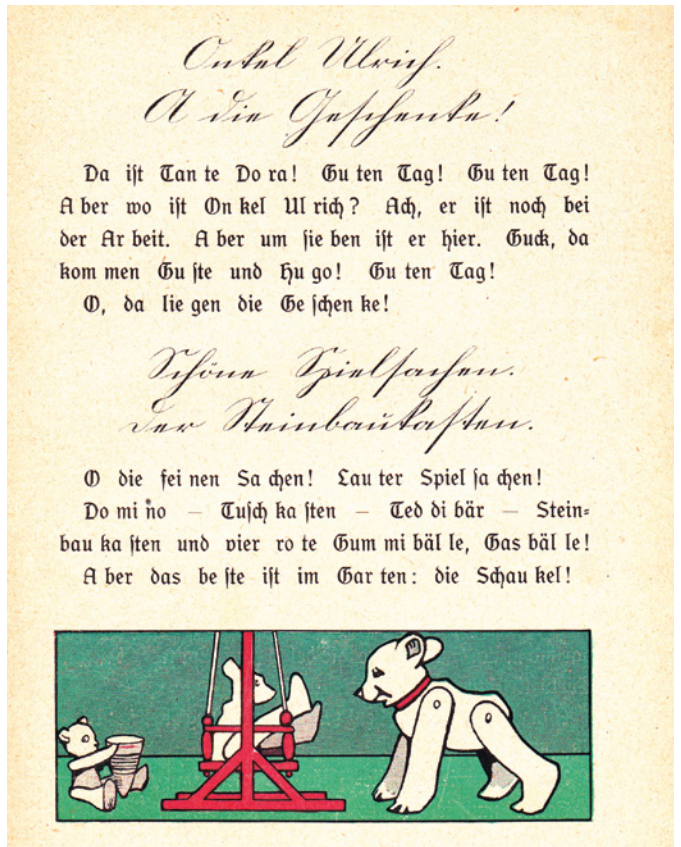 Onkel Ulrich.
A die Geschenke!
Da ist Tan te Do ra! Gu ten Tag! Gu ten Tag!
A ber wo ist On kel Ul rich? Ach, er ist noch bei
der Ar beit. A ber um sie ben ist er hier. Guck, da
kom men Gu ste und Hu go! Gu ten Tag!
O, da lie gen die Ge schen ke!
Schöne Spielsachen.
Der Steinbaukasten.
O die fei nen Sa chen! Lau ter Spiel sa chen!
Do mi no – Tusch ka sten – Ted di bär – Stein-
bau ka sten und vier ro te Gum mi bäl le, Gas bäl le!
A ber das be ste ist im Gar ten: die Schau kel!